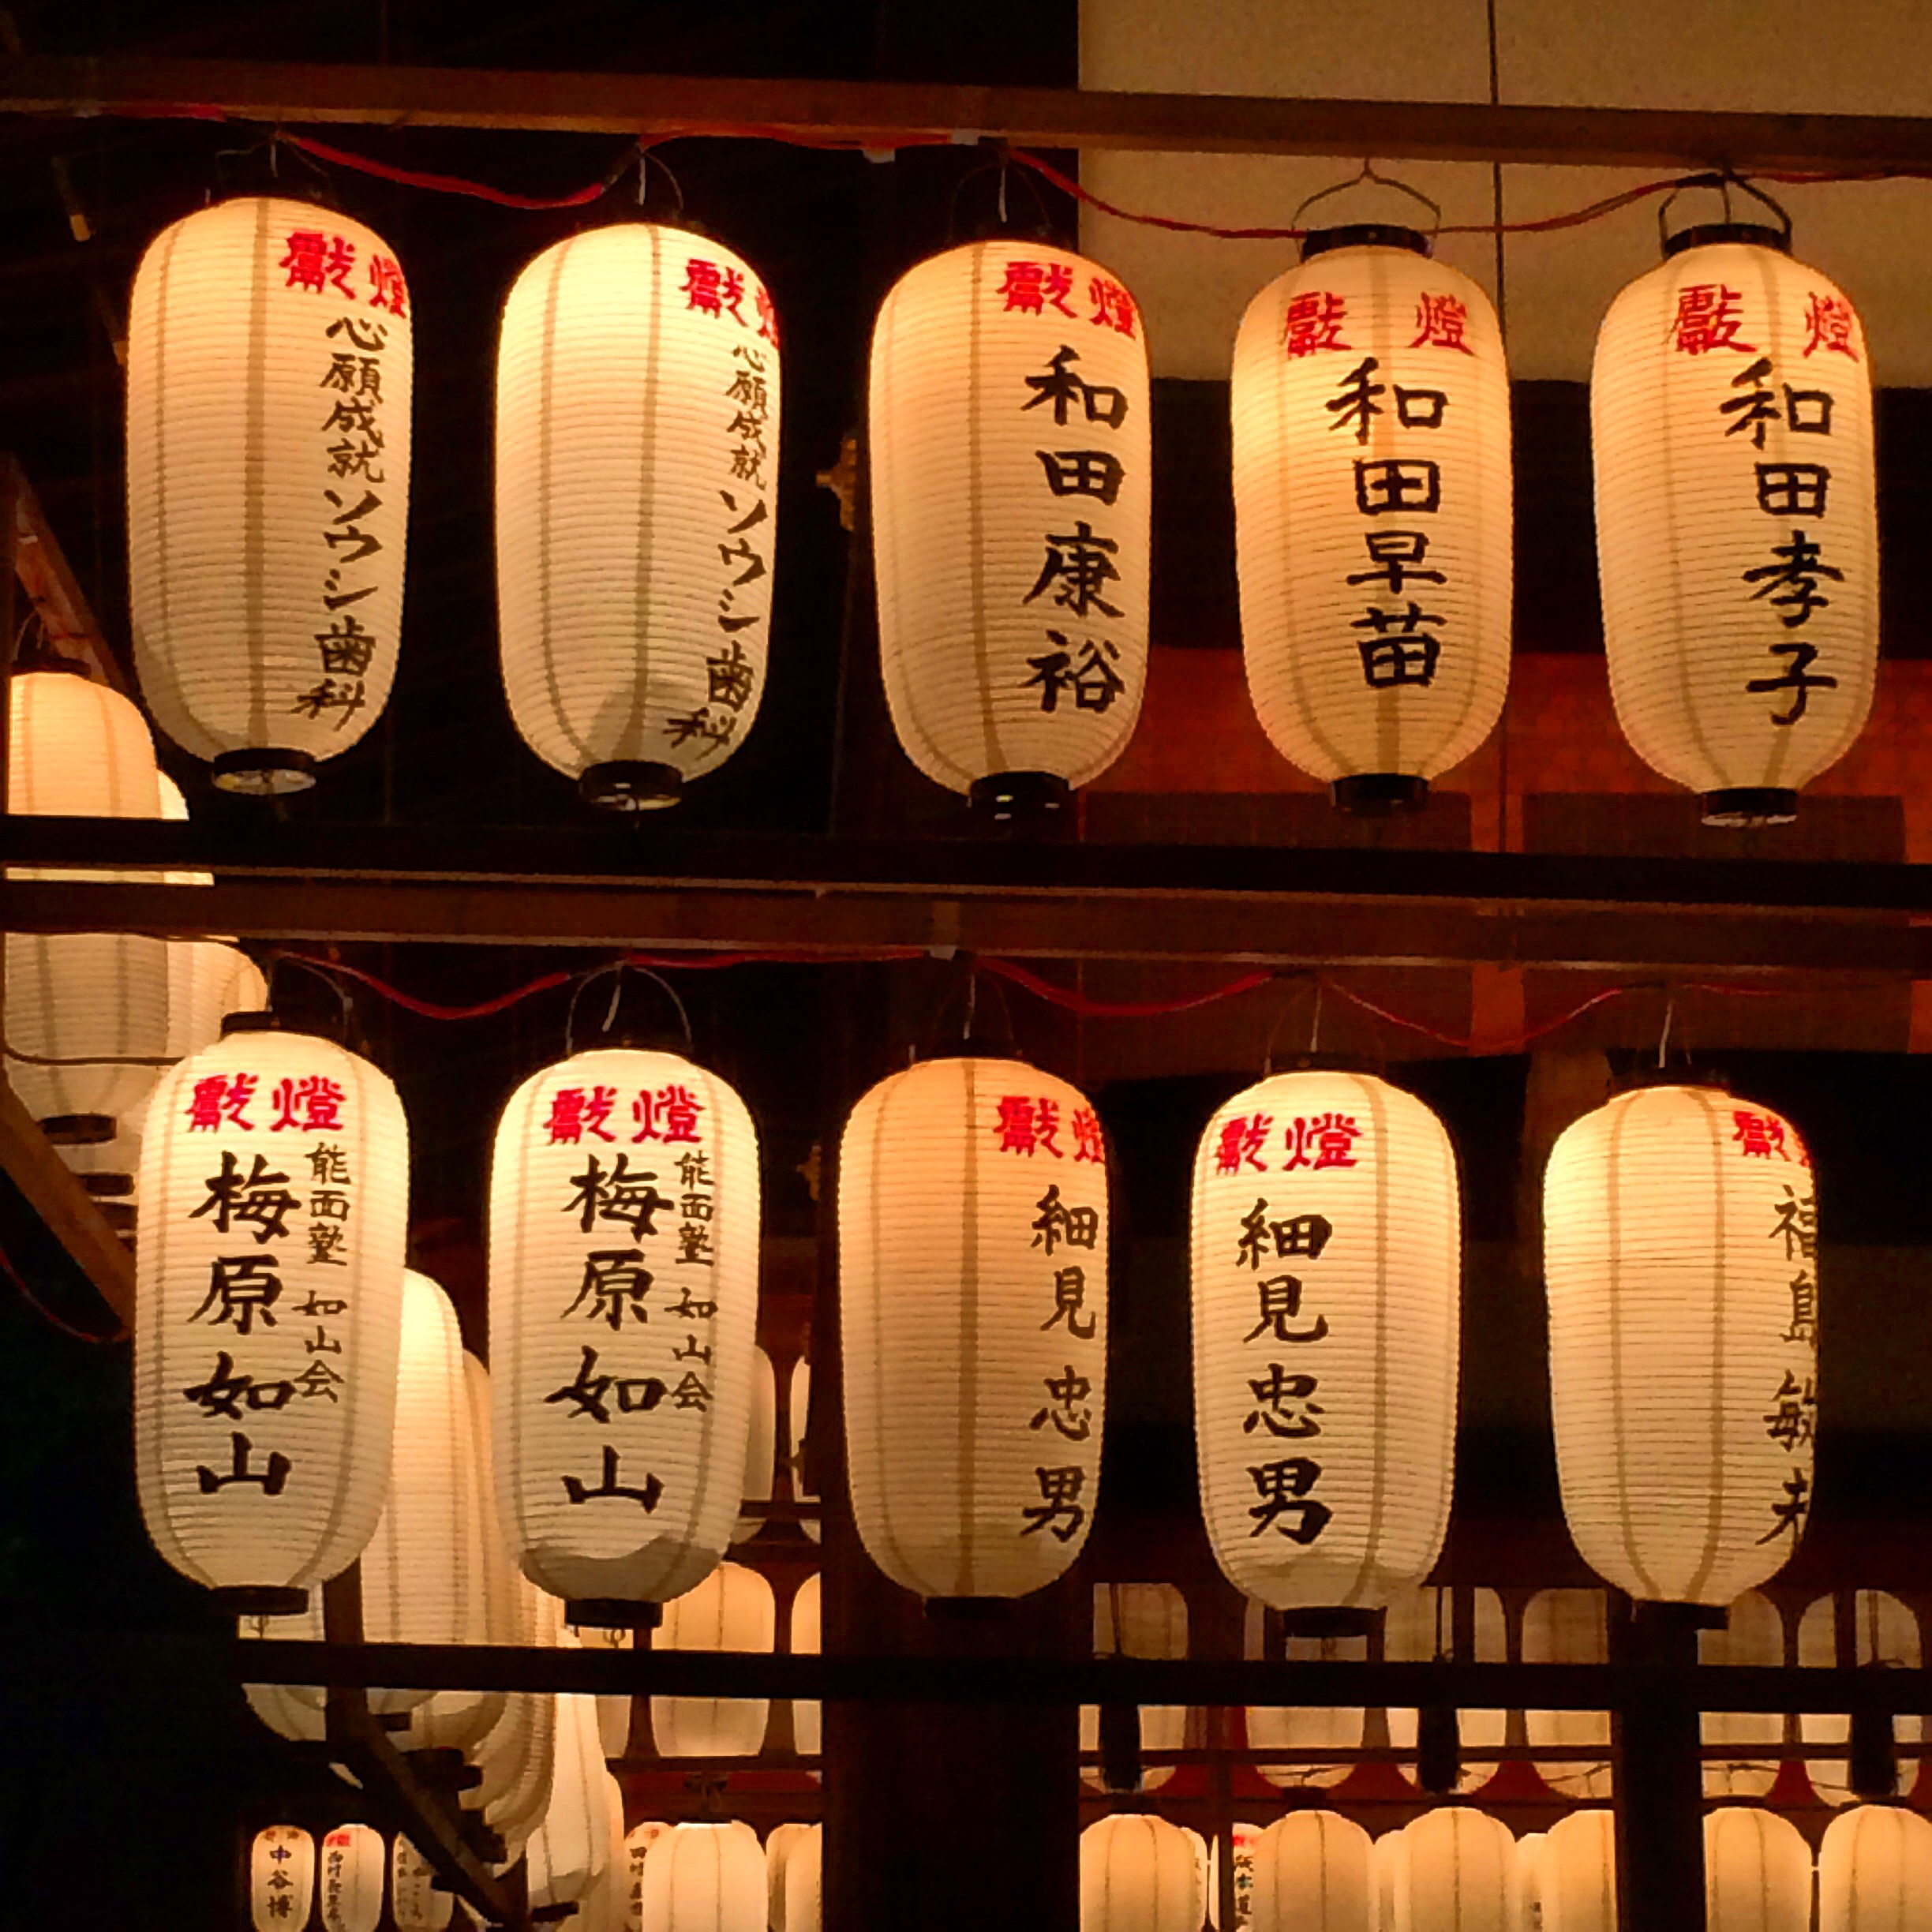 獻燈
心願成就ソウシ歯科
獻燈
心願成就ソウシ歯科
獻燈
和田康裕
獻燈
和田早苗
獻燈
和田孝子
獻燈
能面塾 如山会
梅原如山
獻燈
能面塾 如山会
梅原如山
獻燈
細見忠男
獻燈
細見忠男
獻
福島敏夫
中谷博